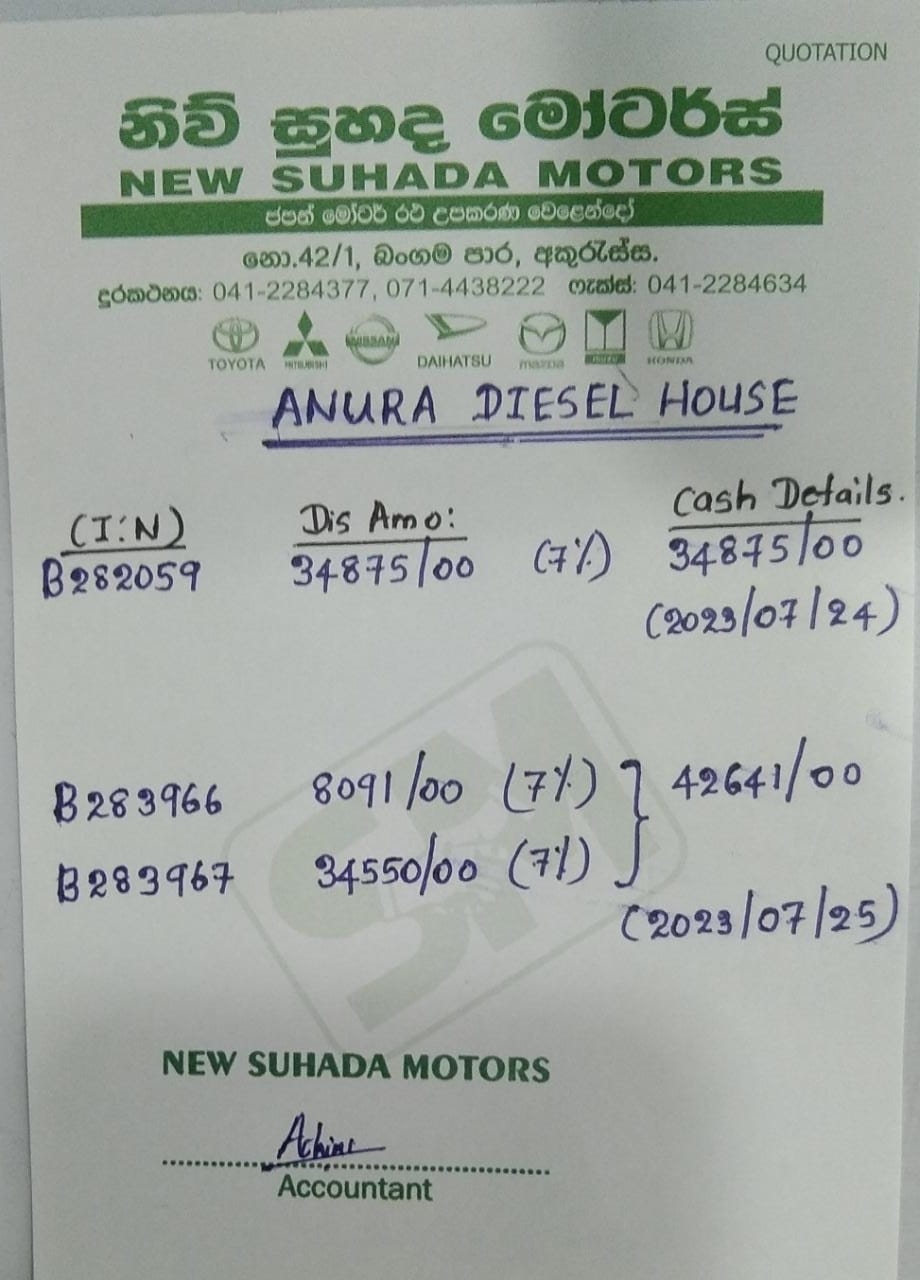 QUOTATION
නිව් සුහද මෝටර්ස්
NEW SUHADA MOTORS
ජපන් මෝටර් රථ උපකරණ වෙළෙන්දෝ
නො.42/1, බංගම පාර, අකුරැස්ස.
දුරකථනය: 041-2284377, 071-4438222 ෆැක්ස්: 041-2284634
TOYOTA MITSUBISHI NISSAN DAIHATSU mazda ISUZU HONDA
ANURA DIESEL HOUSE
(I:N) Dis Amo: Cash Details.
B282059 34875/00 (7%) 34875/00
(2023/07/24)
B283966 8091/00 (7%) } 42641/00
B283967 34550/00 (7%)
(2023/07/25)
SM
NEW SUHADA MOTORS
Accountant